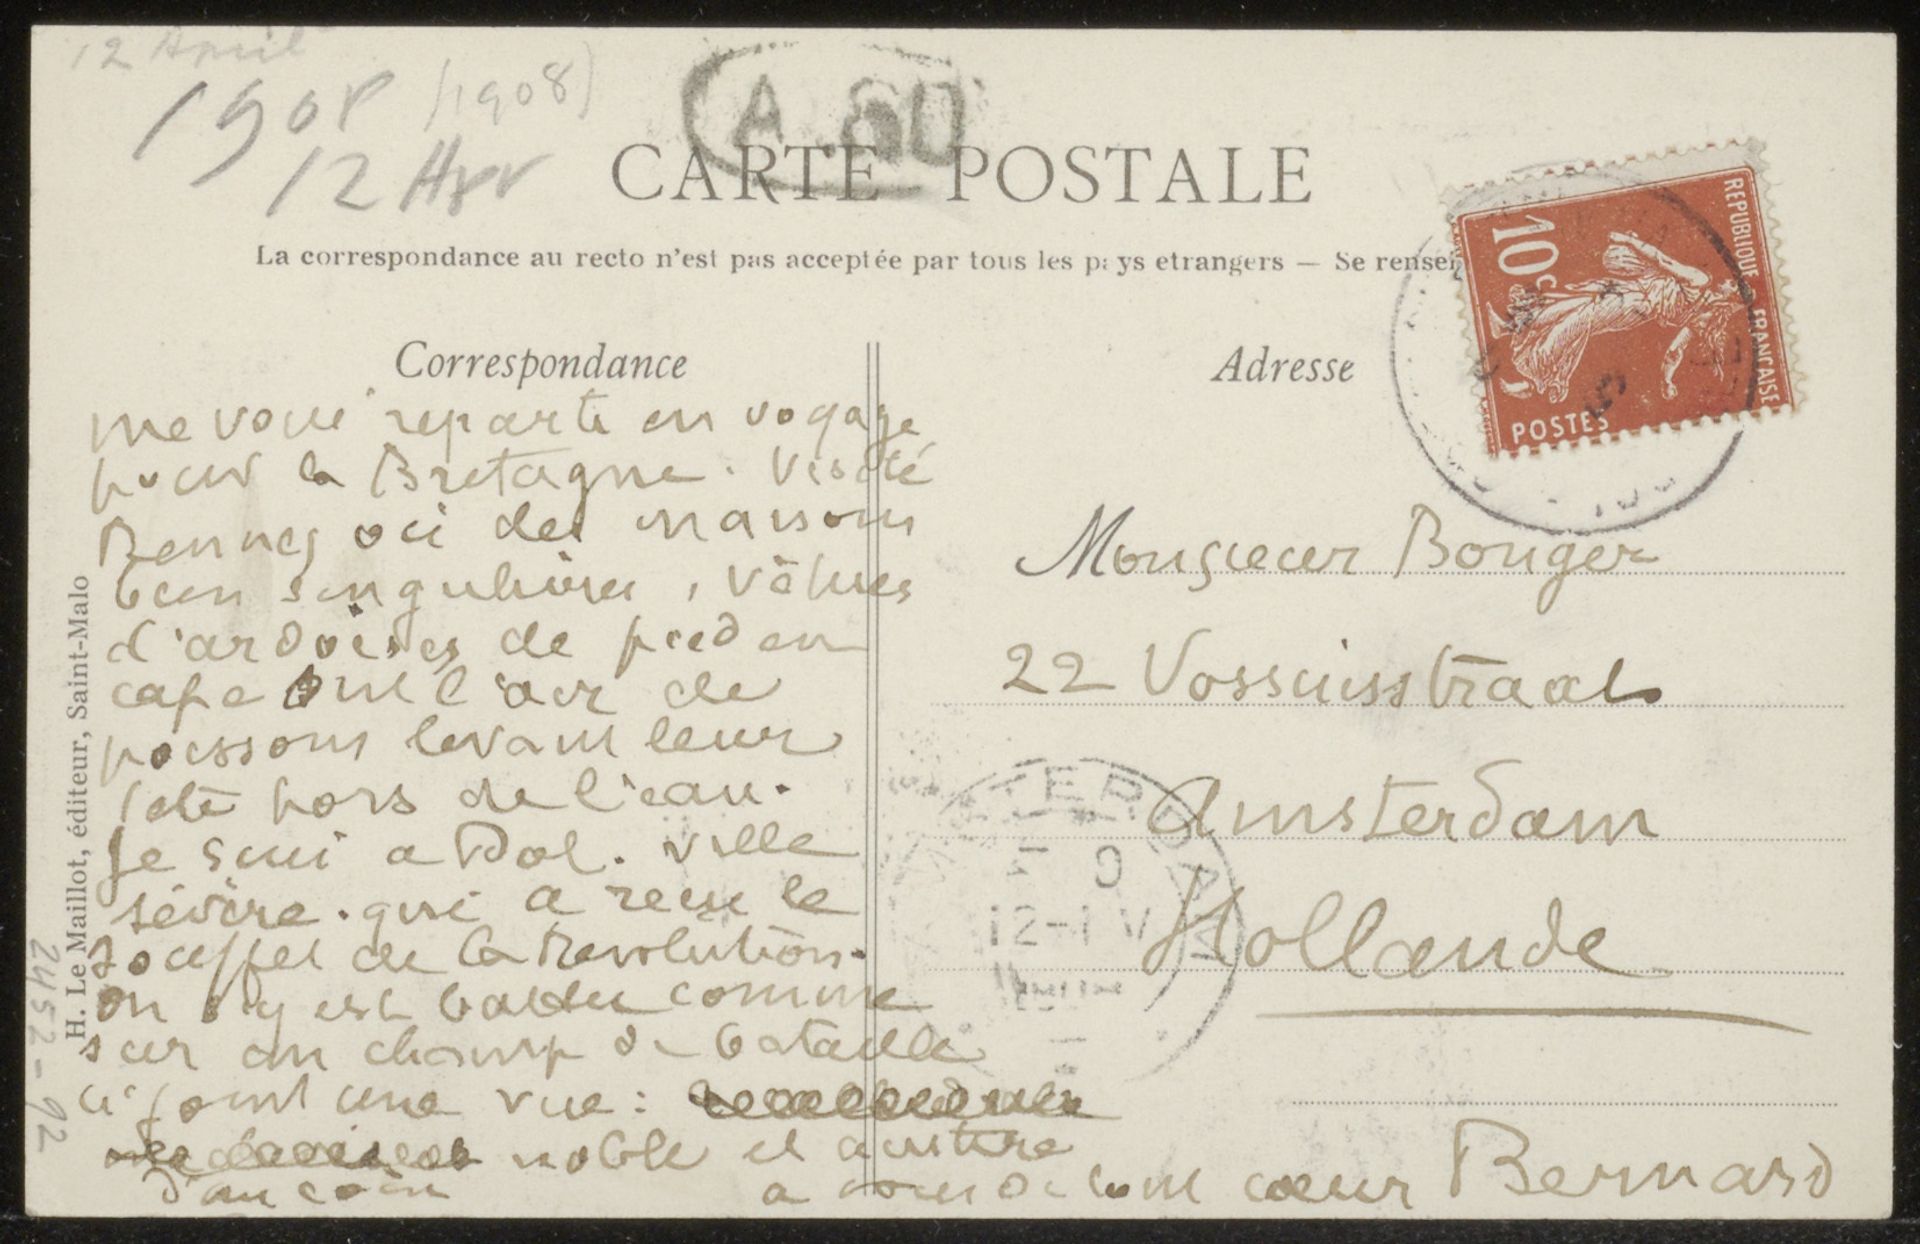 12 April
1908 (1908)
12 Apr
A
CARTE POSTALE
La correspondance au recto n'est pas acceptée par tous les pays etrangers — Se rensei
REPUBLIQUE FRANÇAISE
10c
POSTES
Correspondance
Adresse
me voici reparti en voyage
pour la Bretagne. Visité
Rennes oci des maisons
bien singulières, vêtues
d'ardoises de pied en
cape ont l'air de
poissons levant leur
tete hors de l'eau.
Je suis a Dol. ville
sévère. qui a recu le
souffel de la revolution.
on s'y est battu comme
sur un champ de bataille
ci joint une vue:
noble et austère
d'un coin
a vous de tout cœur Bernard
Monsieur Bonger
22 Vossiusstraat
Amsterdam
Hollande
AMSTERDAM
12-1 V
H. Le Maillot, éditeur, Saint-Malo
2452-92